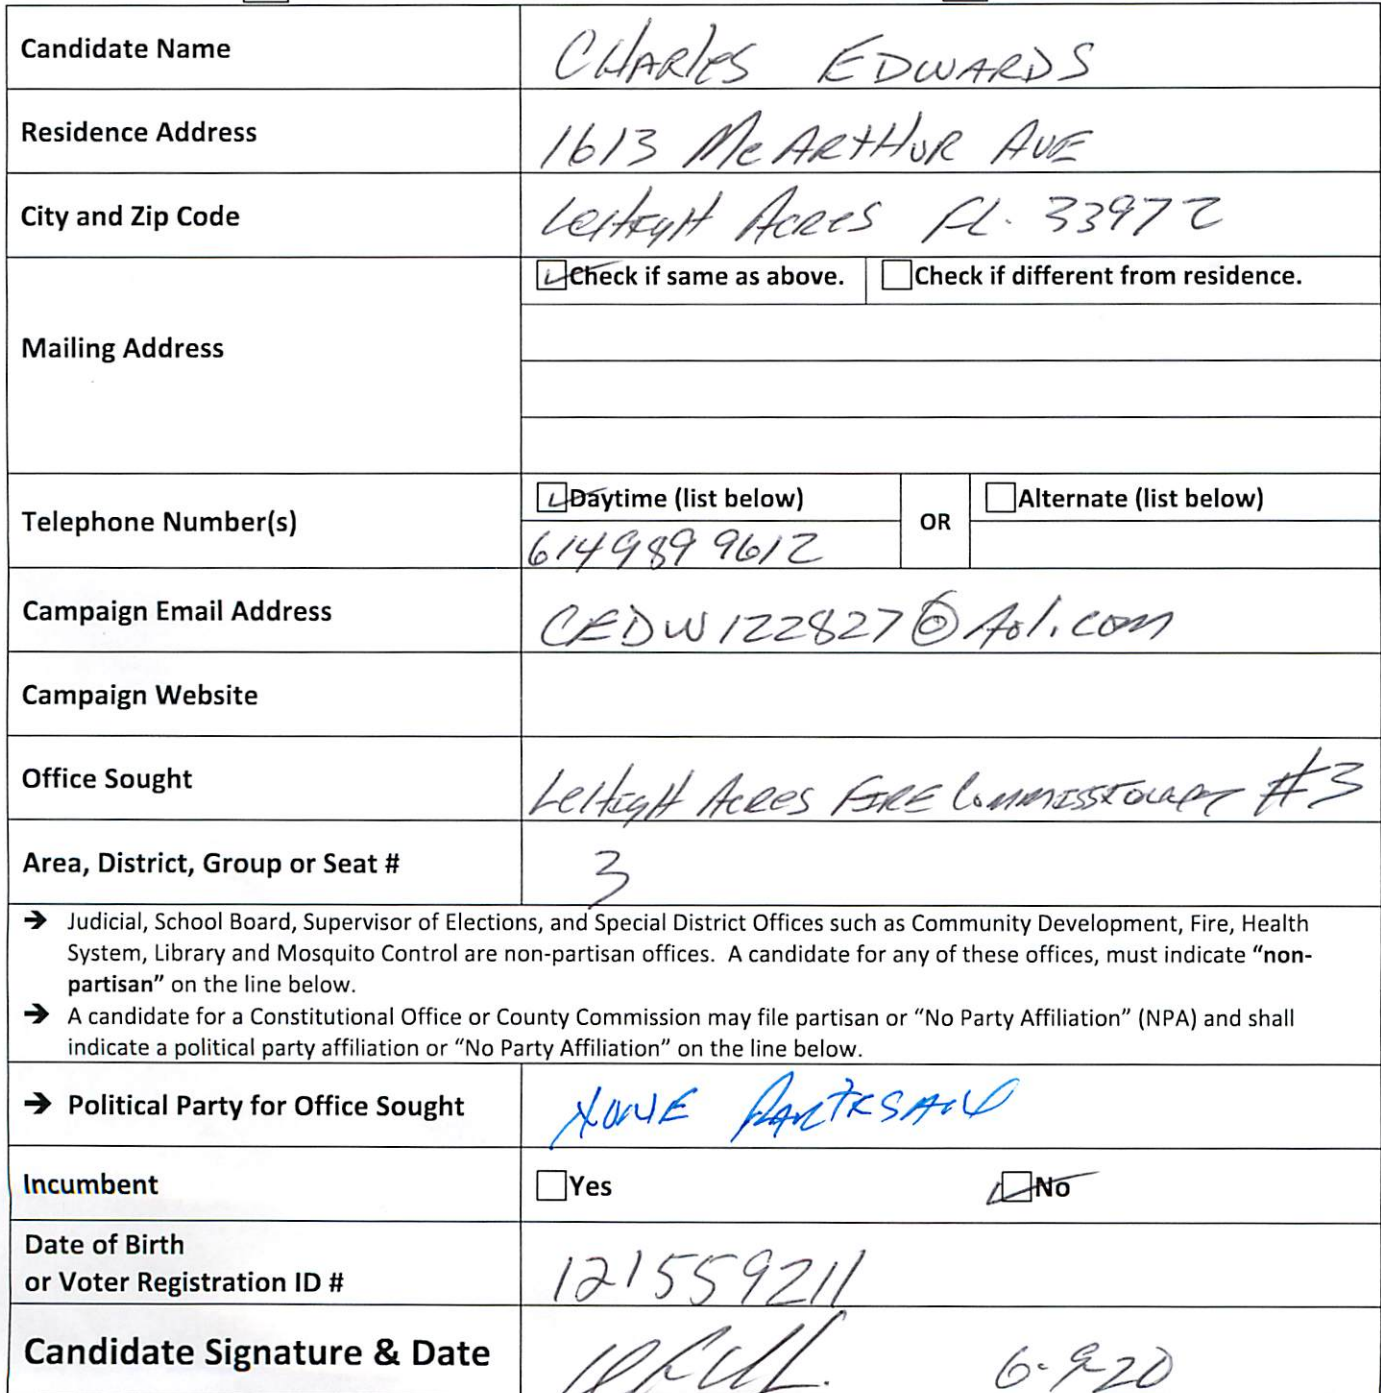 Candidate Name CHARles EDWARDS
Residence Address 1613 Mc ARtHuR AvE
City and Zip Code LeHigH Acres FL. 33972
Check if same as above. Check if different from residence.
Mailing Address
Daytime (list below) OR Alternate (list below)
Telephone Number(s) 614 989 9612
Campaign Email Address CEDW122827@Aol.com
Campaign Website
Office Sought LeHigH Acres FIRE Commissioner #3
Area, District, Group or Seat # 3
➔ Judicial, School Board, Supervisor of Elections, and Special District Offices such as Community Development, Fire, Health
System, Library and Mosquito Control are non-partisan offices. A candidate for any of these offices, must indicate “non-
partisan” on the line below.
➔ A candidate for a Constitutional Office or County Commission may file partisan or “No Party Affiliation” (NPA) and shall
indicate a political party affiliation or “No Party Affiliation” on the line below.
➔ Political Party for Office Sought NONE PARTISAN
Incumbent Yes No
Date of Birth
or Voter Registration ID # 121559211
Candidate Signature & Date 6-9-20